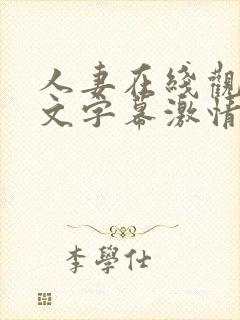 人妻在綫觀
文字幕激情
李學仕